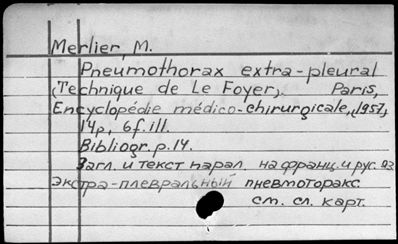 Merlier, M.
Pneumothorax extra-pleural
(Technique de Le Foyer). Paris,
Encyclopédie médico-chirurgicale, (1957,
14p, 6f. ill.
Bibliogr. p. 14.
Загл. и текст парал. на франц. и рус. яз
экстра-плевральный пневмоторакс.
см. сл. карт.